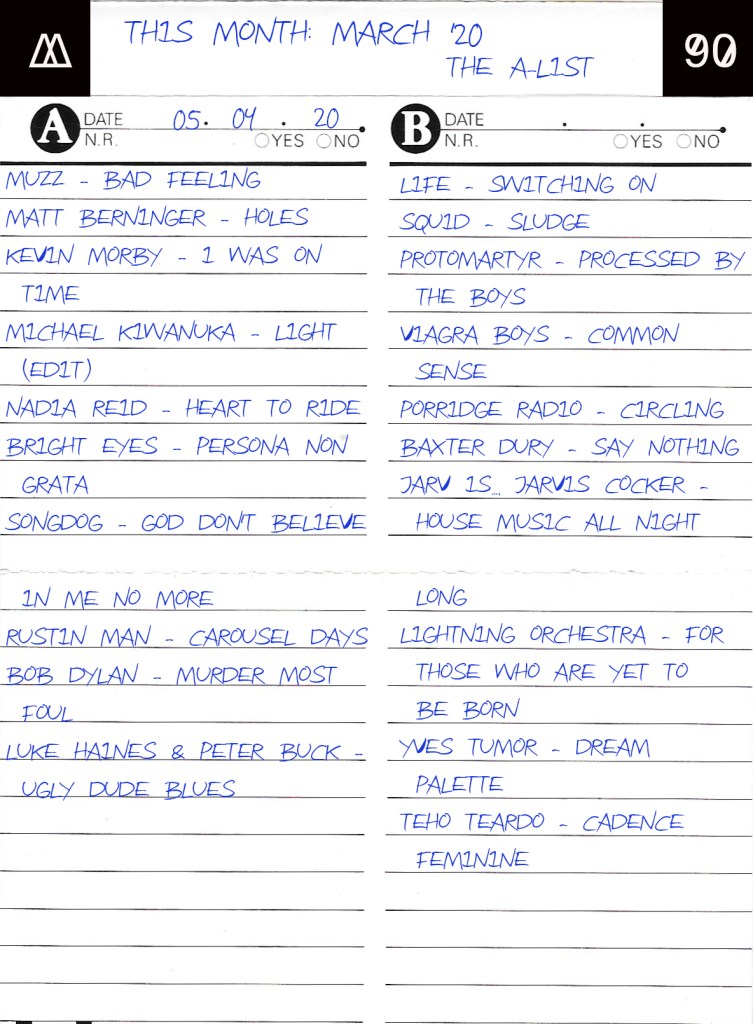 THIS MONTH: MARCH '20
THE A-LIST
90
A DATE 05. 04. 20
N.R. YES NO
MUZZ - BAD FEELING
MATT BERNINGER - HOLES
KEVIN MORBY - I WAS ON
TIME
MICHAEL KIWANUKA - LIGHT
(EDIT)
NADIA REID - HEART TO RIDE
BRIGHT EYES - PERSONA NON
GRATA
SONGDOG - GOD DON'T BELIEVE
IN ME NO MORE
RUSTIN MAN - CAROUSEL DAYS
BOB DYLAN - MURDER MOST
FOUL
LUKE HAINES & PETER BUCK -
UGLY DUDE BLUES
B DATE . .
N.R. YES NO
LIFE - SWITCHING ON
SQUID - SLUDGE
PROTOMARTYR - PROCESSED BY
THE BOYS
VIAGRA BOYS - COMMON
SENSE
PORRIDGE RADIO - CIRCLING
BAXTER DURY - SAY NOTHING
JARV IS... JARVIS COCKER -
HOUSE MUSIC ALL NIGHT
LONG
LIGHTNING ORCHESTRA - FOR
THOSE WHO ARE YET TO
BE BORN
YVES TUMOR - DREAM
PALETTE
TEHO TEARDO - CADENCE
FEMININE